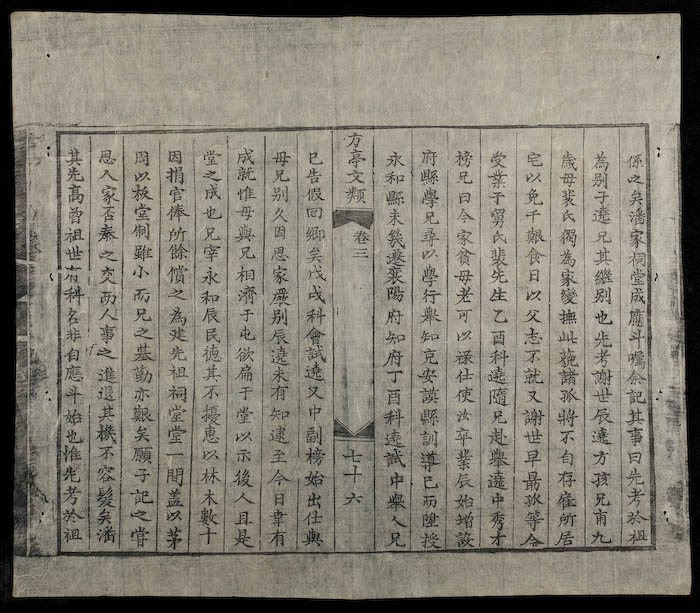 係之矣潘家祠堂成應斗囑余記其事曰先考於祖
為别子遶兄其繼别也先考謝世辰遶方孩兄甫九
歲母裴氏獨為家變撫此藐諸孤將不自存雇所居
宅以免千艱食日以父志不就又謝世早朂孤等合
受業于舅氏裴先生乙酉科遶隨兄赴舉遶中秀才
榜兄曰今家貧母老可以禄仕使汝卒業辰始增設
府縣學兄尋以學行舉知京安謨縣訓導已而陞授
永和縣未幾遷襄陽府知府丁酉科遶試中舉人兄
方亭文類 卷三 七十六
已告假回鄉矣戊戌科會試遶又中副榜始出仕與
母兄别久因思家嚴别辰遶未有知逮至今日幸有
成就惟母與兄相濟于屯欲扁于堂以示後人且是
堂之成也兄宰永和辰民德其不擾惠以林木數十
因捐官俸所餘償之為建先祖祠堂堂一間盖以茅
周以板堂制雖小而兄之基勤亦艱矣願子記之嘗
思人家否泰之交而人事之進退其機不容髮矣潘
其先高曾祖世有科名非自應斗始也惟先考於祖